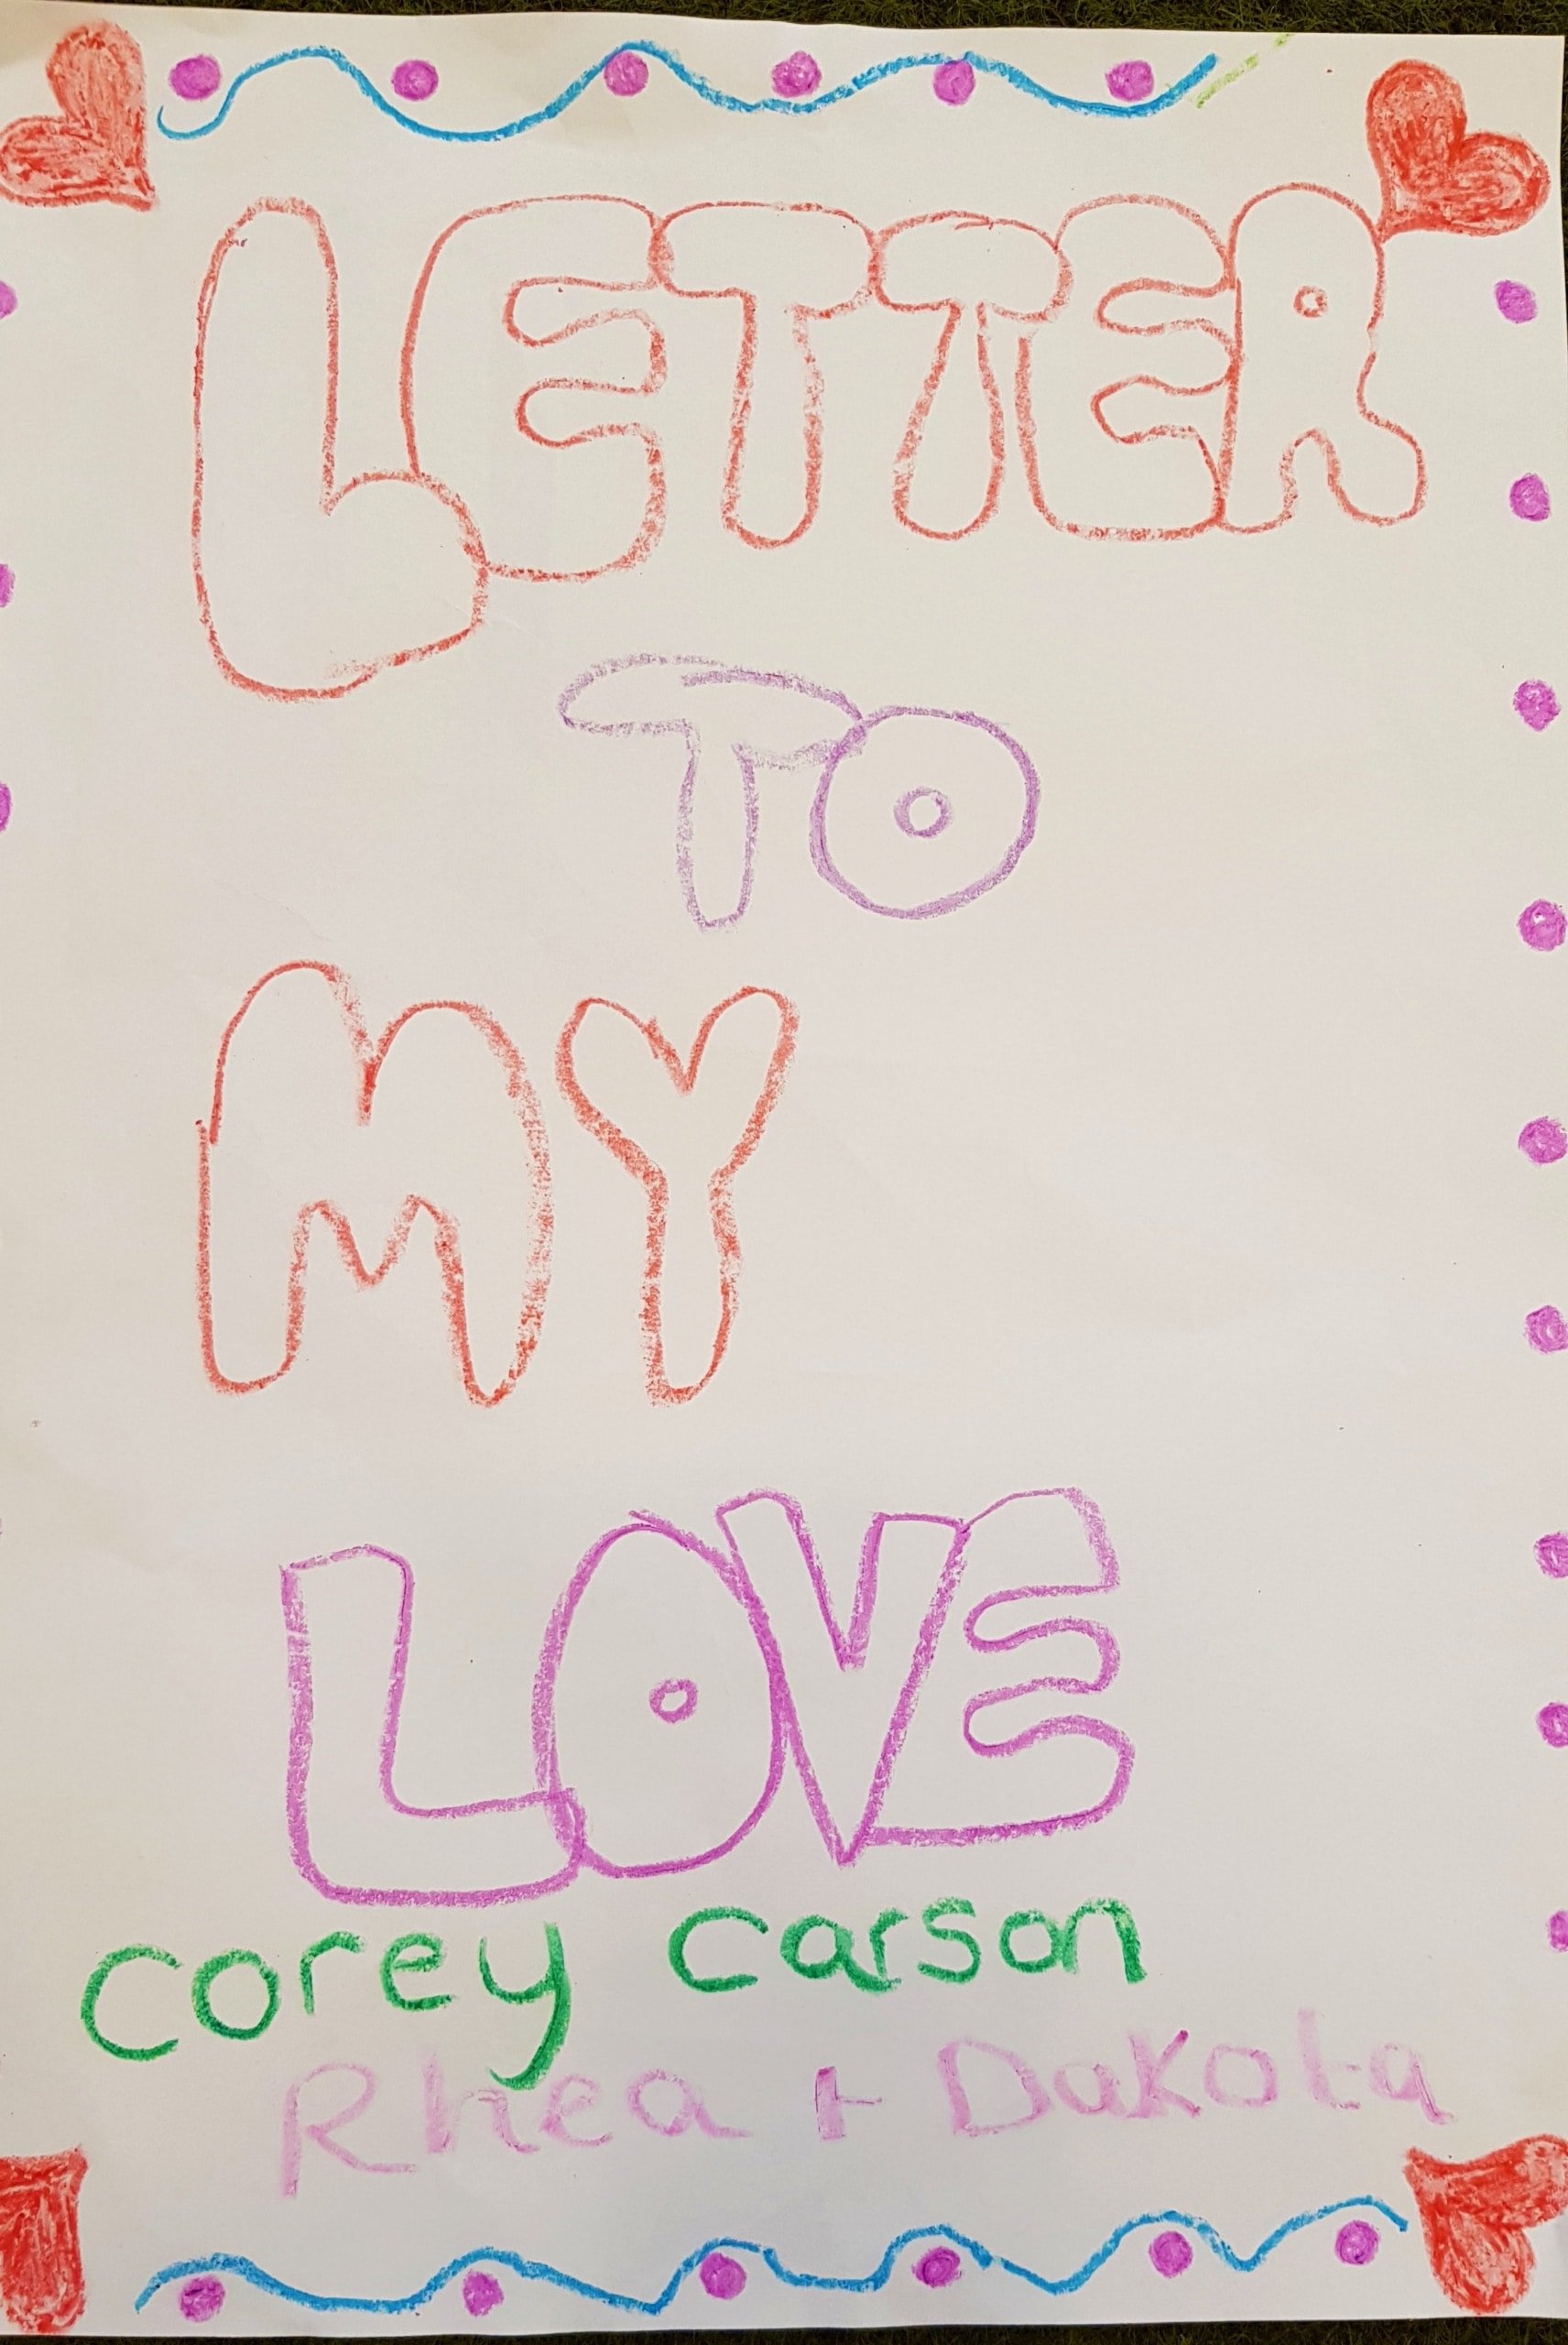 LETTER
TO
MY
LOVE
corey carson
Rhea + Dakota